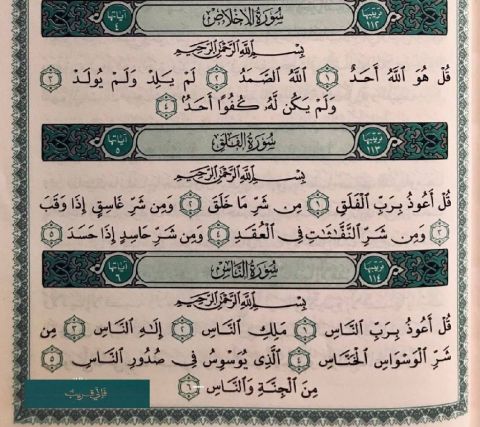 ترتيبها ١١٢ سُورَةُ الإِخْلَاصِ آياتها ٤
بِسْمِ اللَّهِ الرَّحْمَٰنِ الرَّحِيمِ
قُلْ هُوَ اللَّهُ أَحَدٌ ١ اللَّهُ الصَّمَدُ ٢ لَمْ يَلِدْ وَلَمْ يُولَدْ ٣
وَلَمْ يَكُن لَّهُ كُفُوًا أَحَدٌ ٤
ترتيبها ١١٣ سُورَةُ الفَلَقِ آياتها ٥
بِسْمِ اللَّهِ الرَّحْمَٰنِ الرَّحِيمِ
قُلْ أَعُوذُ بِرَبِّ الْفَلَقِ ١ مِن شَرِّ مَا خَلَقَ ٢ وَمِن شَرِّ غَاسِقٍ إِذَا وَقَبَ
٣ وَمِن شَرِّ النَّفَّٰثَٰتِ فِي الْعُقَدِ ٤ وَمِن شَرِّ حَاسِدٍ إِذَا حَسَدَ ٥
ترتيبها ١١٤ سُورَةُ النَّاسِ آياتها ٦
بِسْمِ اللَّهِ الرَّحْمَٰنِ الرَّحِيمِ
قُلْ أَعُوذُ بِرَبِّ النَّاسِ ١ مَلِكِ النَّاسِ ٢ إِلَٰهِ النَّاسِ ٣ مِن
شَرِّ الْوَسْوَاسِ الْخَنَّاسِ ٤ الَّذِي يُوَسْوِسُ فِي صُدُورِ النَّاسِ ٥
مِنَ الْجِنَّةِ وَالنَّاسِ ٦
فإني قريب